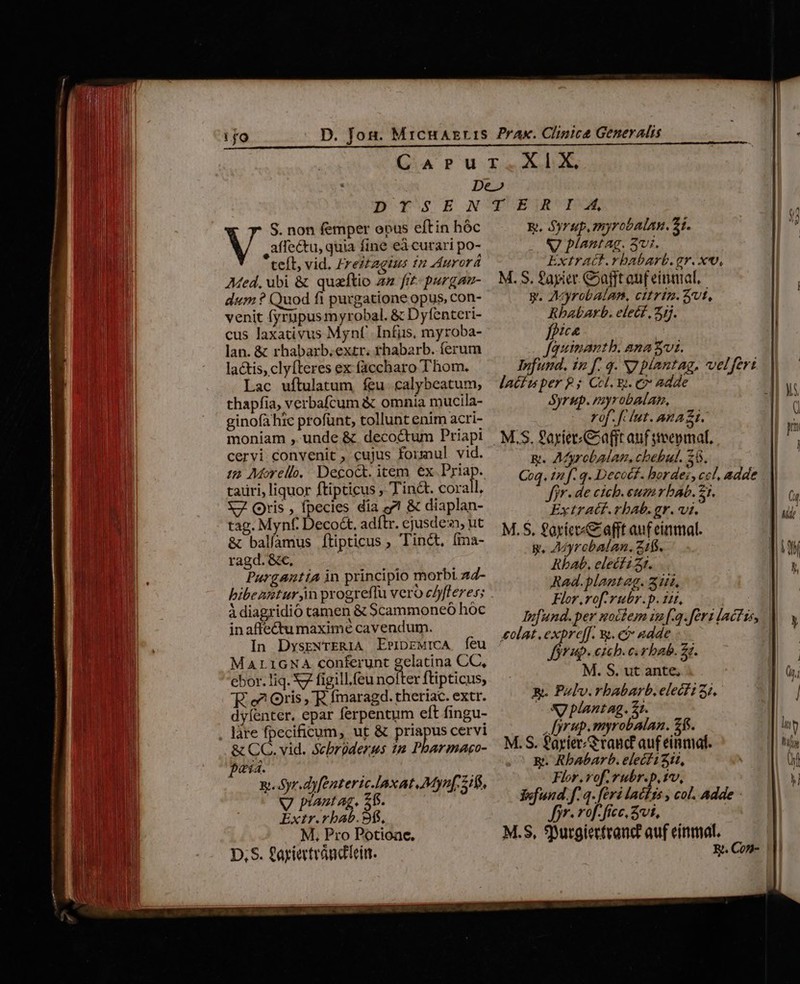 150 D. Joh. Michaelis Prax. Clinicæ Generalis
Caput. XIX.
De
DYSENTERIA.
VS. non semper opus est in hôc
affectu, quia sine eâ curari po-
test, vid. Freitagius in Aurorâ
Med. ubi & quæstio an sit purgan-
dum? Quod si purgatione opus, con-
venit syrupus myrobal. & Dysenteri-
cus laxativus Mynſ. Infus, myroba-
lan. & rhabarb. extr. rhabarb. serum
lactis, clysteres ex saccharo Thom.
Lac ustulatum seu calybeatum,
thapsia, verbascum & omnia mucila-
ginosa hîc prosunt, tollunt enim acri-
moniam, unde & decoctum Priapi
cervi convenit, cujus formul vid.
in Morello. Decoct. item ex Priap.
tauri, liquor stipticus, Tinct. corall,
🜄 ♂ris, species dia ♂ & diaplan-
tag. Mynſ. Decoct, adstr. ejusdem, ut
& balsamus stipticus, Tinct. sma-
ragd. &c,
Purgantia in principio morbi ad-
hibeantur, in progressu verò clysteres;
à diagridiô tamen & Scammoneô hôc
in affectu maximè cavendum.
In Dysenteria Epidemica seu
Maligna conferunt gelatina CC,
ebor. liq. 🜄 sigill. seu noster stipticus,
℞ ♂ ♂ris, ℞ smaragd. theriac. extr.
dysenter, epar serpentum est singu-
lare specificum, ut & priapus cervi
& CC. vid. Schröderus in Pharmaco-
pæiâ.
℞. Syr. dysenteric. laxat. Mynſ. ℥iß,
🜄 plantag. ℥ß.
Extr. rhab. ℈ß,
M. Pro Potione,
D,S. Laxierträncklein.
℞. Syrup, myrobalan. ℥i.
🜄 plantag. ʒvi.
Extract. rhabarb. gr. xv,
M. S. Laxier Safft auf einmal.
℞. Myrobalan, citrin. ʒvi,
Rhabarb. elect. ʒij.
spicæ
squinanth. ana ʒvi.
Infund. in ſ. q. 🜄 plantag, vel seri
lactis per P; Col. ℞. & adde
Syrup. myrobalan,
ros. solut. ana ℥i.
M.S. Laxier-Safft auf zweymal.
℞. Myrobalan, chebul. ℥ß.
Coq. in ſ. q. Decoct. hordei, col, adde
syr. de cich. cum rhab. ℥i.
Extract. rhab. gr. vi.
M. S. Laxier-Safft auf einmal.
℞. Myrobalan. ℥iß.
Rhab. electi ʒi.
Rad. plantag. ʒiii,
Flor, ros. rubr. p. iii,
Infund. per noctem in ſ. q. seri lactis,
colat. express. ℞. & adde
syrup. cich. c. rhab. ℥i.
M. S. ut ante,
℞. Pulv. rhabarb. electi ʒi,
🜄 plantag. ℥i.
syrup. myrobalan. ℥ß.
M. S. Laxier-Tranck auf einmal.
℞. Rhabarb. electi ʒii,
Flor. ros. rubr. p. iv,
Infund. ſ. q. seri lactis, col. adde
syr. ros. sicc, ʒvi,
M.S, Purgiertranck auf einmal.
℞. Con-